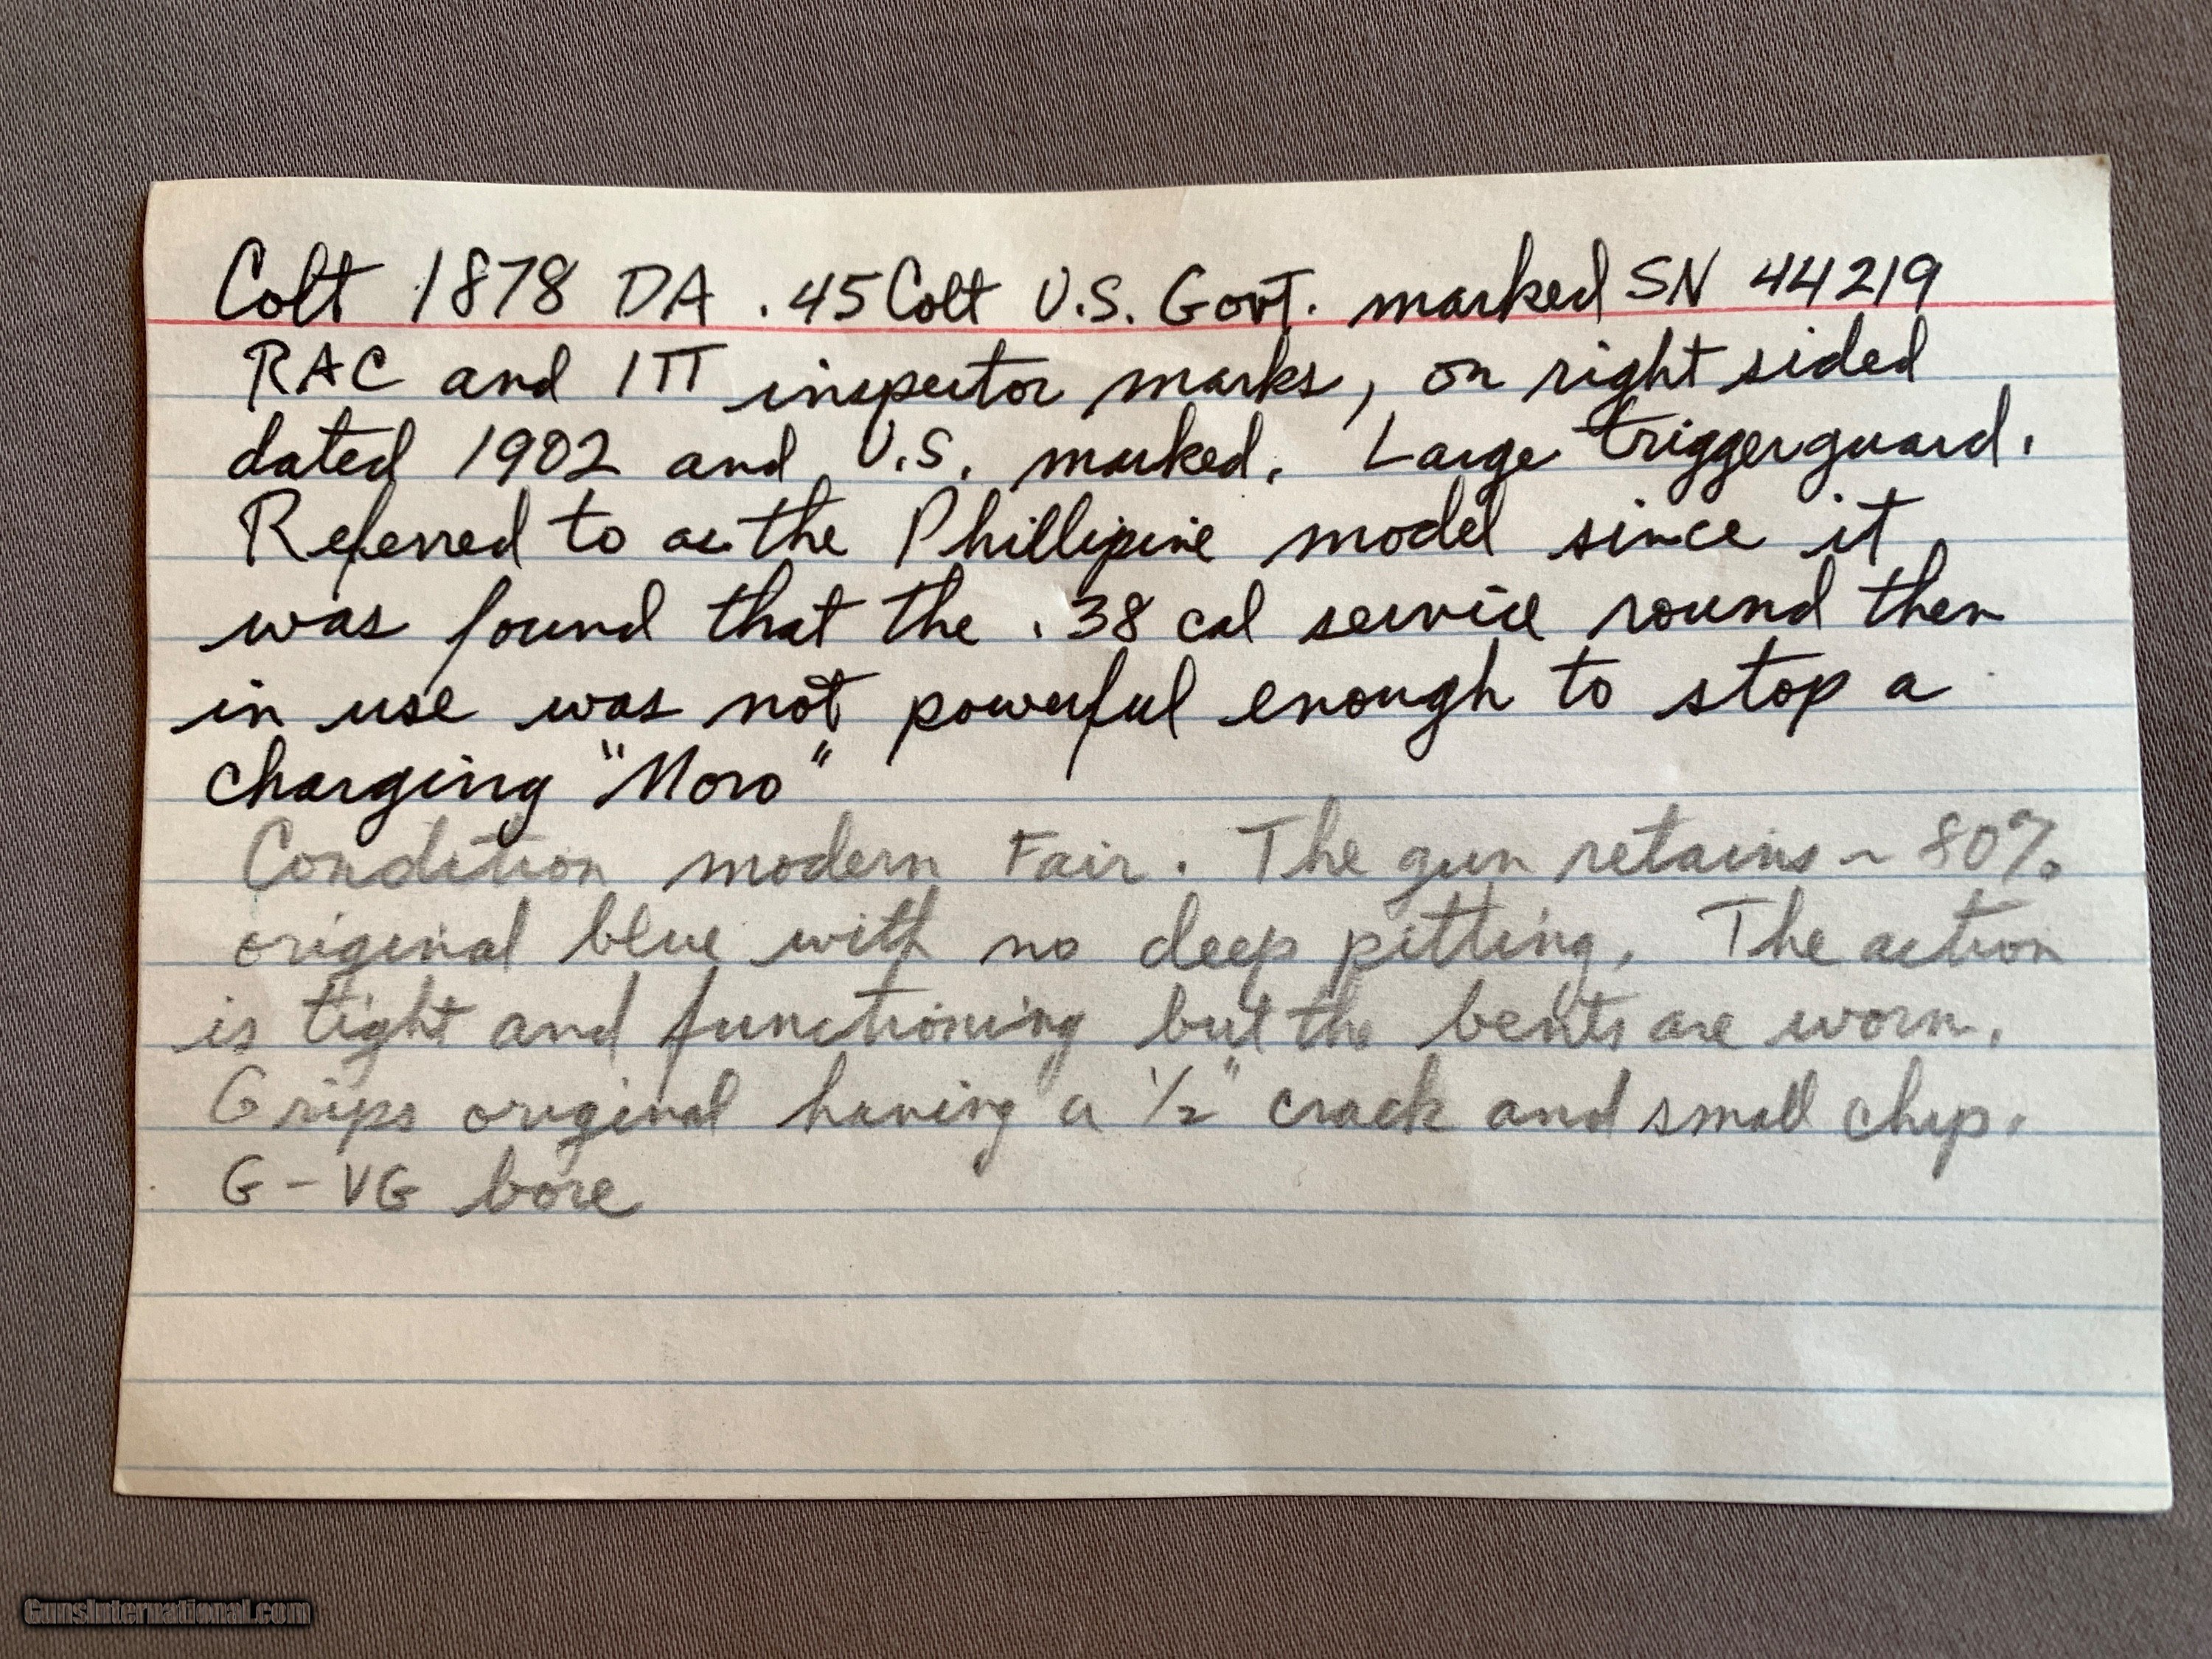 Colt 1878 DA .45 Colt U.S. Govt. marked SN 44219
RAC and ITT inspector marks, on right sided
dated 1902 and U.S. marked. Large triggerguard.
Referred to as the Phillipine model since it
was found that the .38 cal service round then
in use was not powerful enough to stop a
charging "Moro"
Condition modern Fair. The gun retains ~ 80%
original blue with no deep pitting. The action
is tight and functioning but the bents are worn.
Grips original having a 1/2" crack and small chip.
G-VG bore
GunsInternational.com